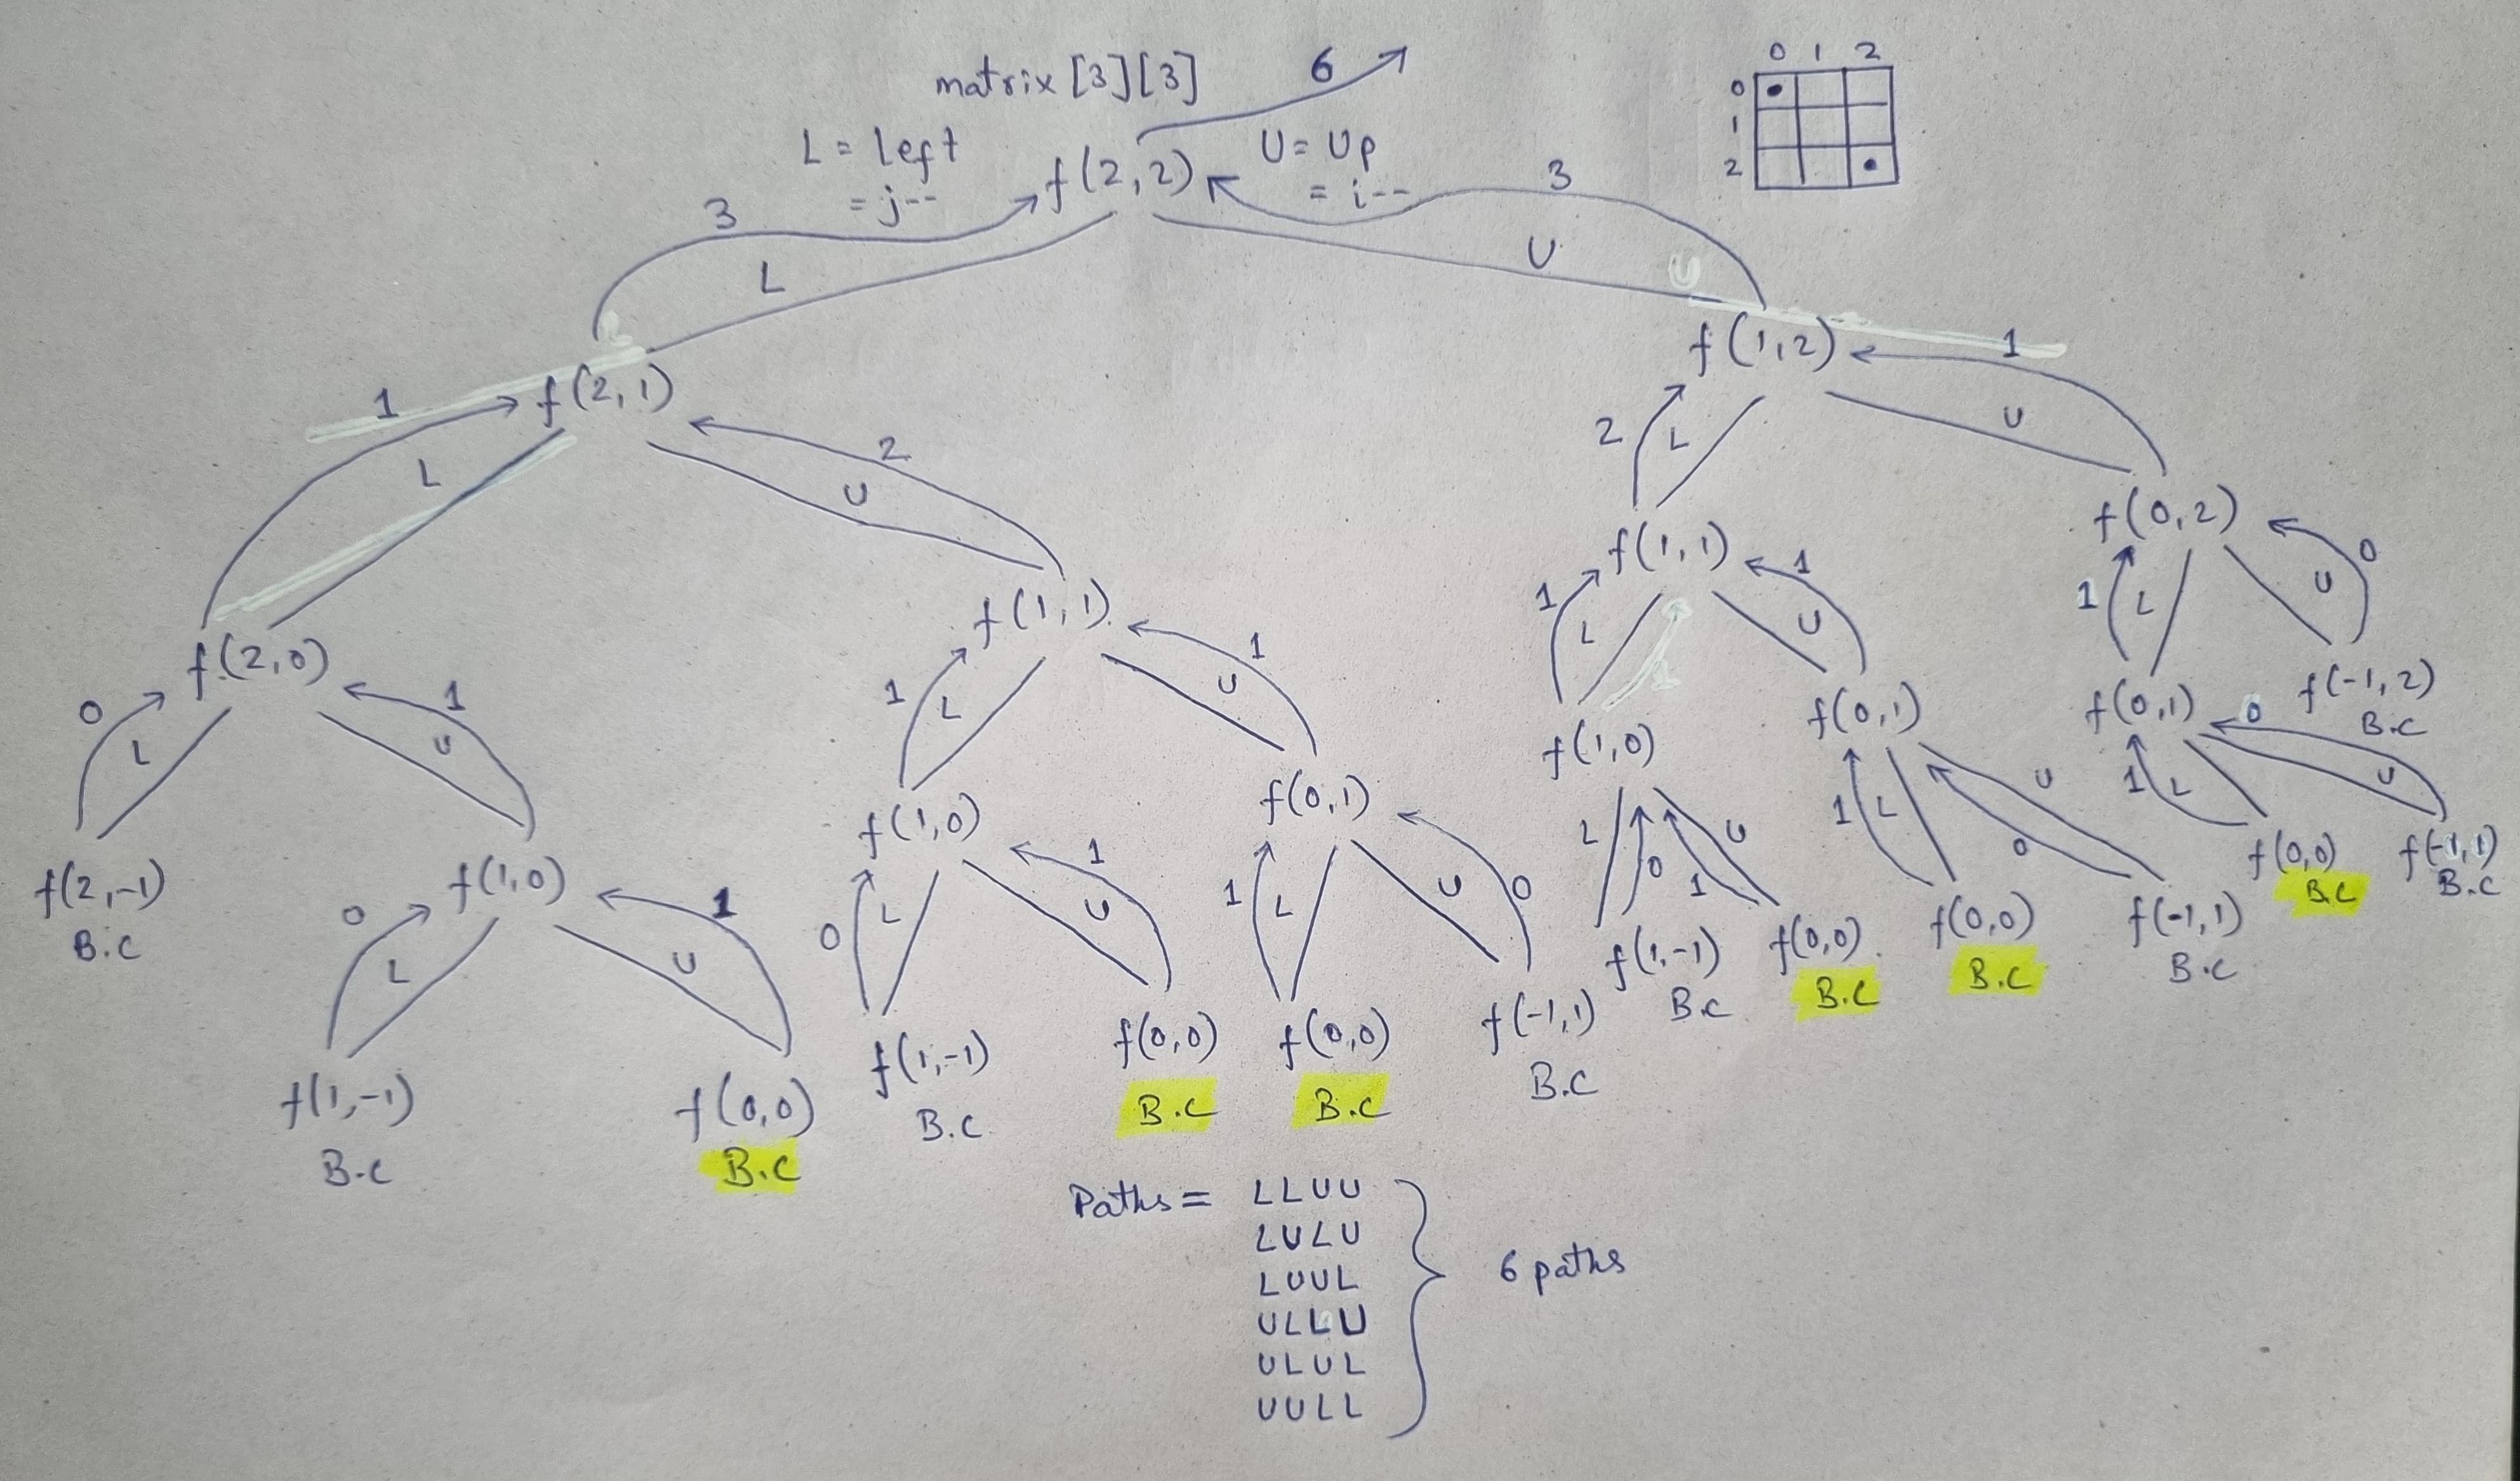 matrix [3][3]
6
0 1 2
0
1
2
L = left
= j--
f(2,2)
U = Up
= i--
3
3
L
U
U
f(2,1)
f(1,2)
1
2
2
1
L
U
L
U
f(2,0)
f(1,1)
f(1,1)
f(0,2)
0
L
1
U
1
L
1
U
1
L
1
U
1
L
0
U
f(2,-1)
B.C
f(1,0)
f(1,0)
f(0,1)
f(1,0)
f(0,1)
f(0,1)
f(-1,2)
B.C
0
L
1
U
0
L
1
U
1
L
0
U
L
0
1
U
1
L
0
U
1
L
0
U
f(1,-1)
B.C
f(0,0)
B.C
f(1,-1)
B.C
f(0,0)
B.C
f(0,0)
B.C
f(-1,1)
B.C
f(1,-1)
B.C
f(0,0)
B.C
f(0,0)
B.C
f(-1,1)
B.C
f(0,0)
B.C
f(-1,1)
B.C
Paths = LLUU
LULU
LUUL
ULLU
ULUL
UULL
6 paths